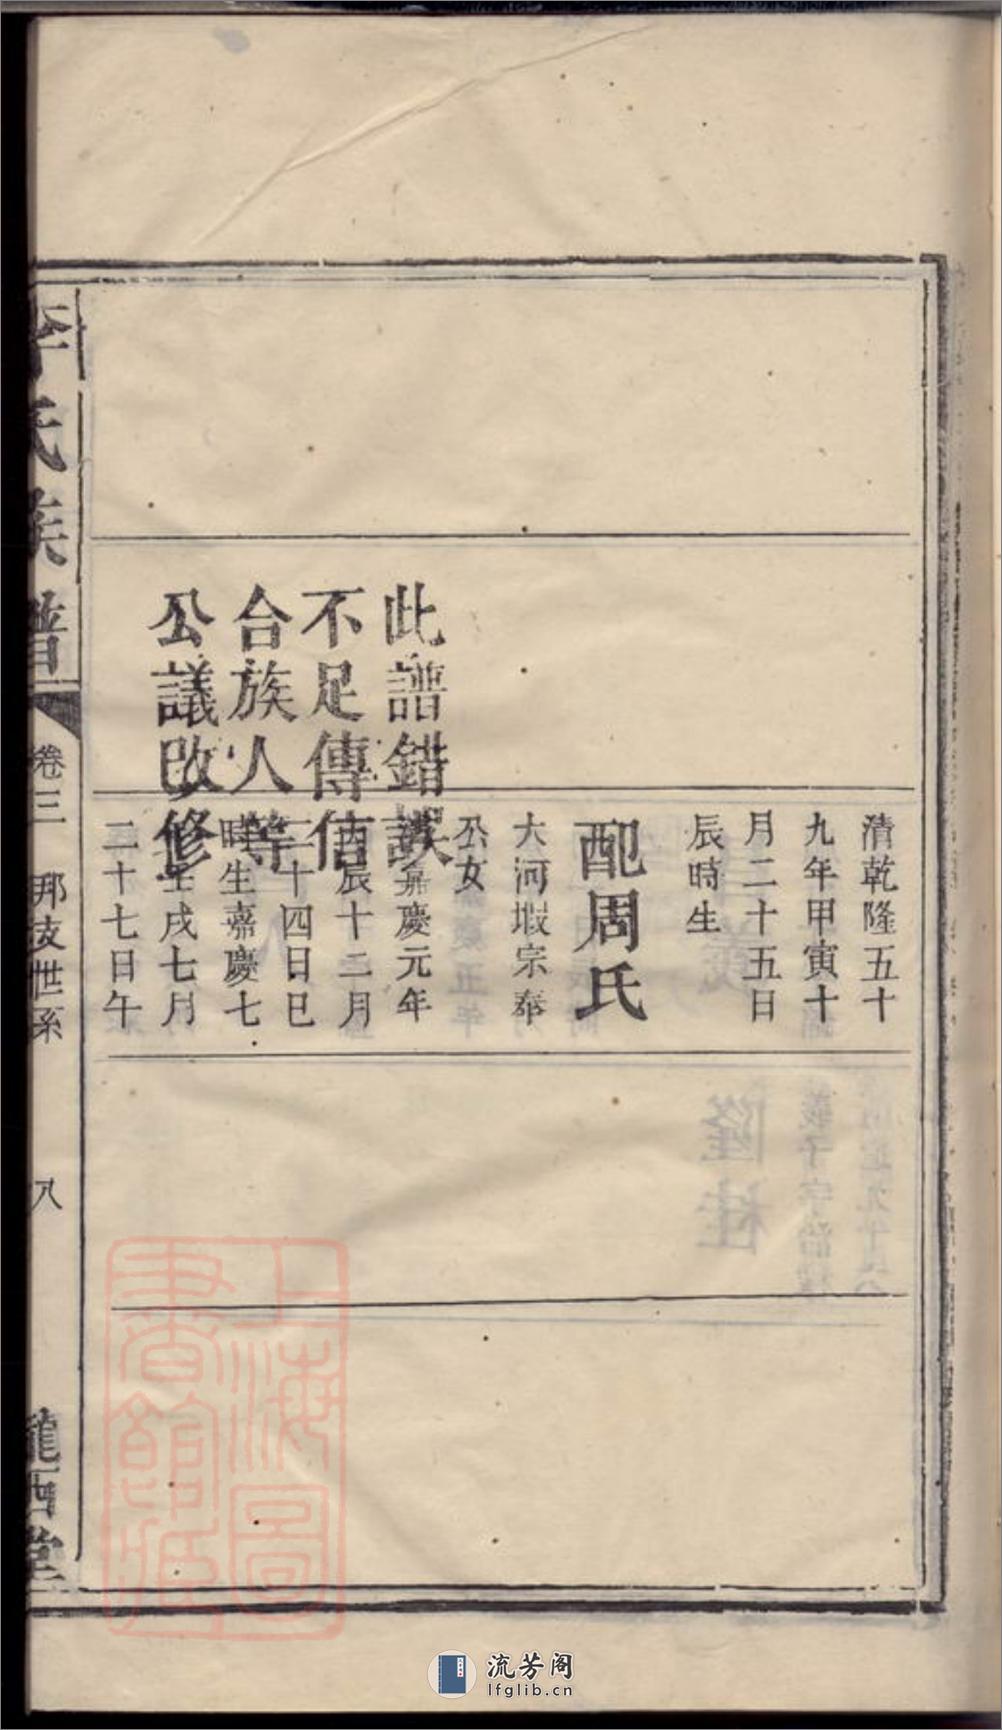 清乾隆五十
九年甲寅十
月二十五日
辰時生
配周氏
大河塅宗奉
公女
嘉慶元年
丙辰十二月
二十四日巳
時生嘉慶七
壬戌七月
二十七日午
此譜錯誤
不足傳信
合族人等
公議改修
李氏族譜
卷三
那支世系
八
隴西堂
上海圖
書館藏
流芳阁
lfglib.cn